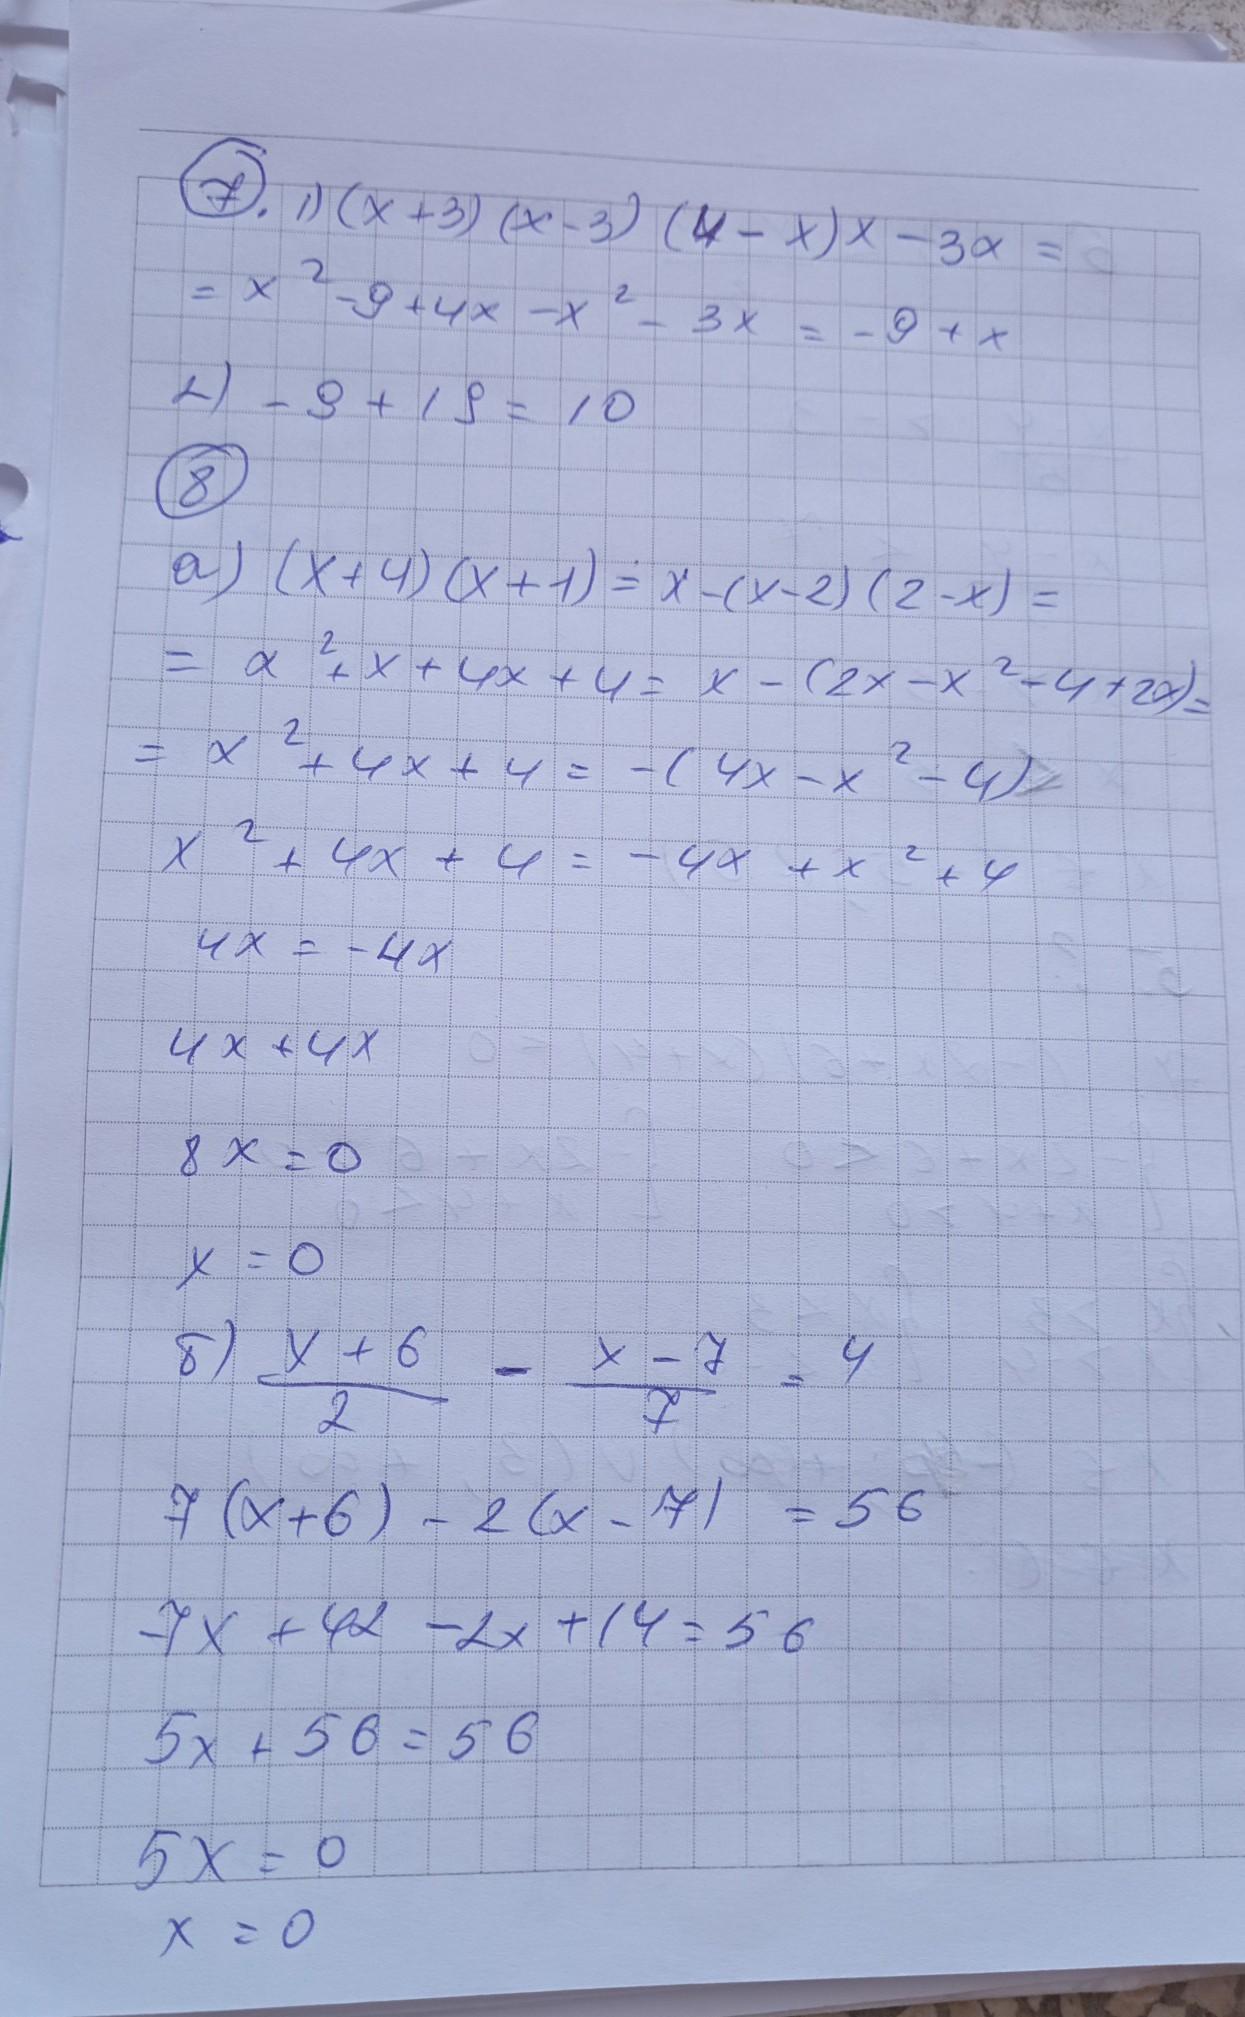 7. 1) (x+3) (x-3) (4-x)x - 3x =
= x² - 9 + 4x - x² - 3x = -9 + x
2) -9 + 19 = 10
8
а) (x+4) (x+1) = x - (x-2) (2-x) =
= x² + x + 4x + 4 = x - (2x - x² - 4 + 2x) =
= x² + 4x + 4 = -(4x - x² - 4)
x² + 4x + 4 = -4x + x² + 4
4x = -4x
4x + 4x
8x = 0
x = 0
б) \frac{x+6}{2} - \frac{x-7}{7} = 4
7(x+6) - 2(x-7) = 56
7x + 42 - 2x + 14 = 56
5x + 56 = 56
5x = 0
x = 0